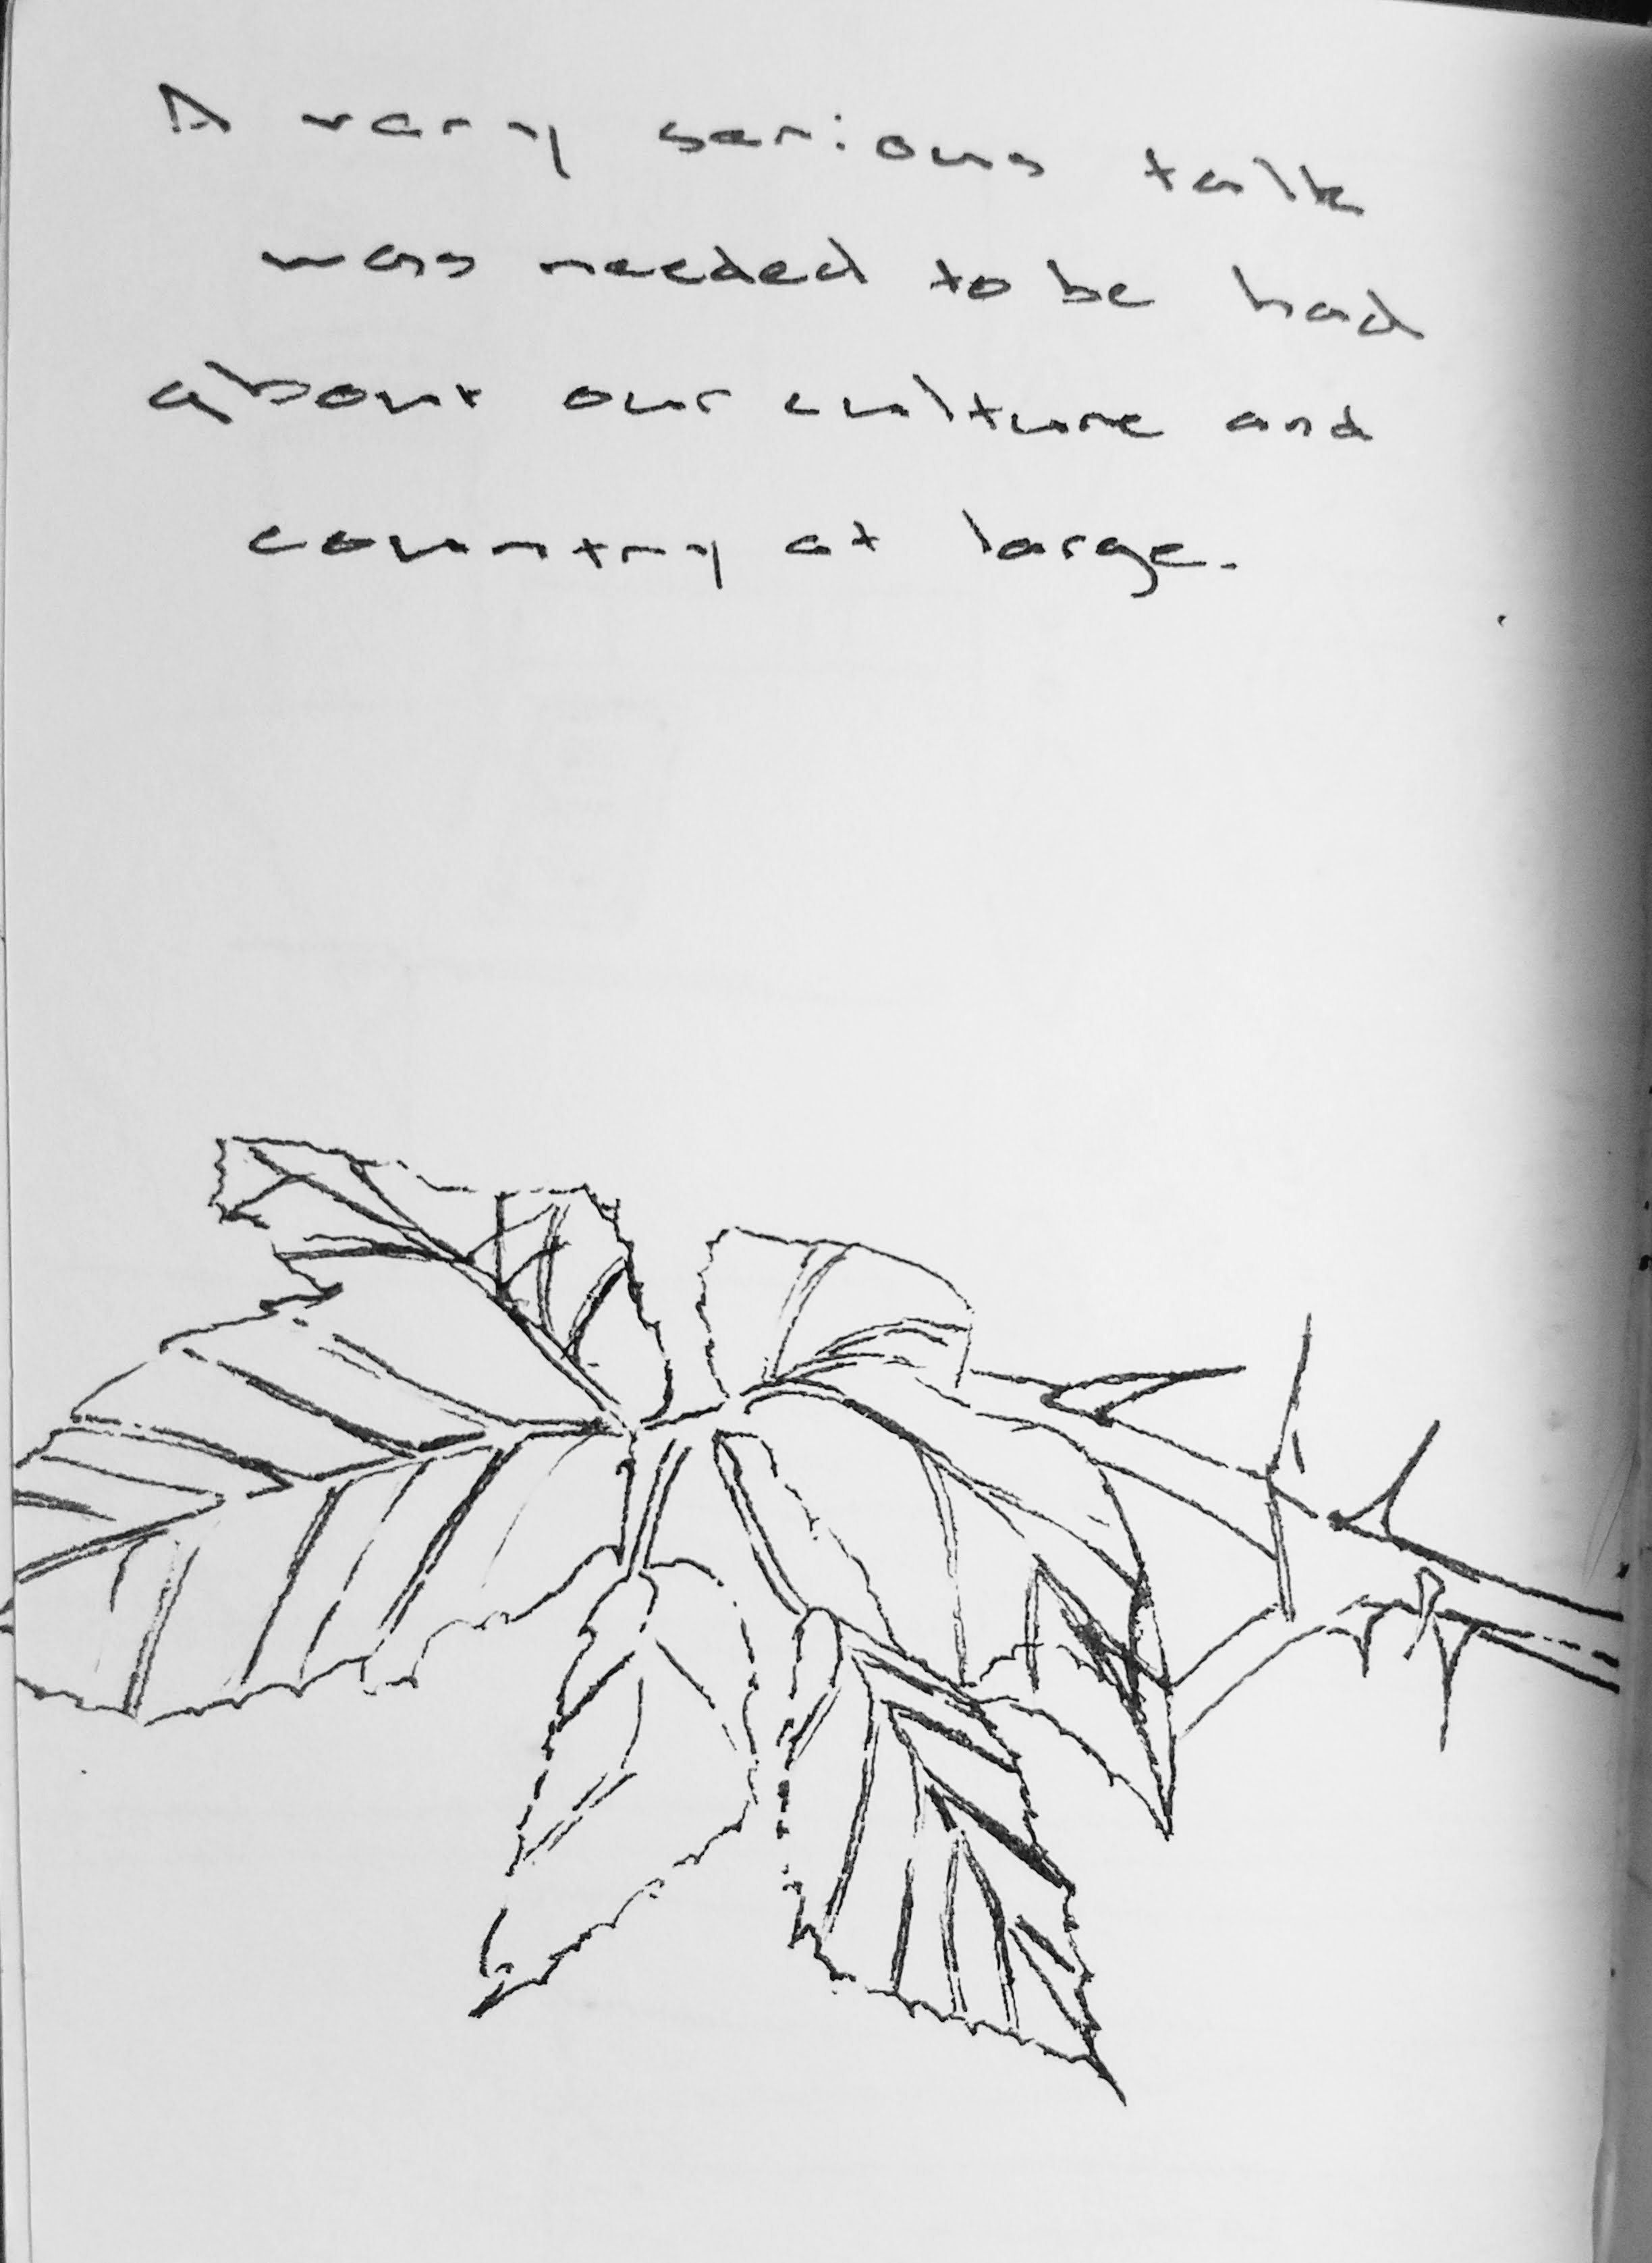 A very serious talk
was needed to be had
about our culture and
country at large.